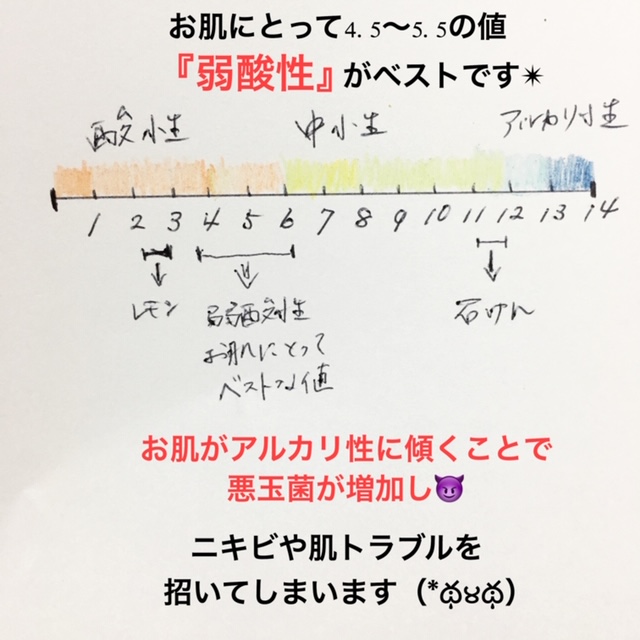 お肌にとって4.5〜5.5の値
『弱酸性』がベストです✴
酸性 中性 アルカリ性
1 2 3 4 5 6 7 8 9 10 11 12 13 14
レモン 弱酸性 石けん
お肌にとって
ベストな値
お肌がアルカリ性に傾くことで
悪玉菌が増加し😈
ニキビや肌トラブルを
招いてしまいます